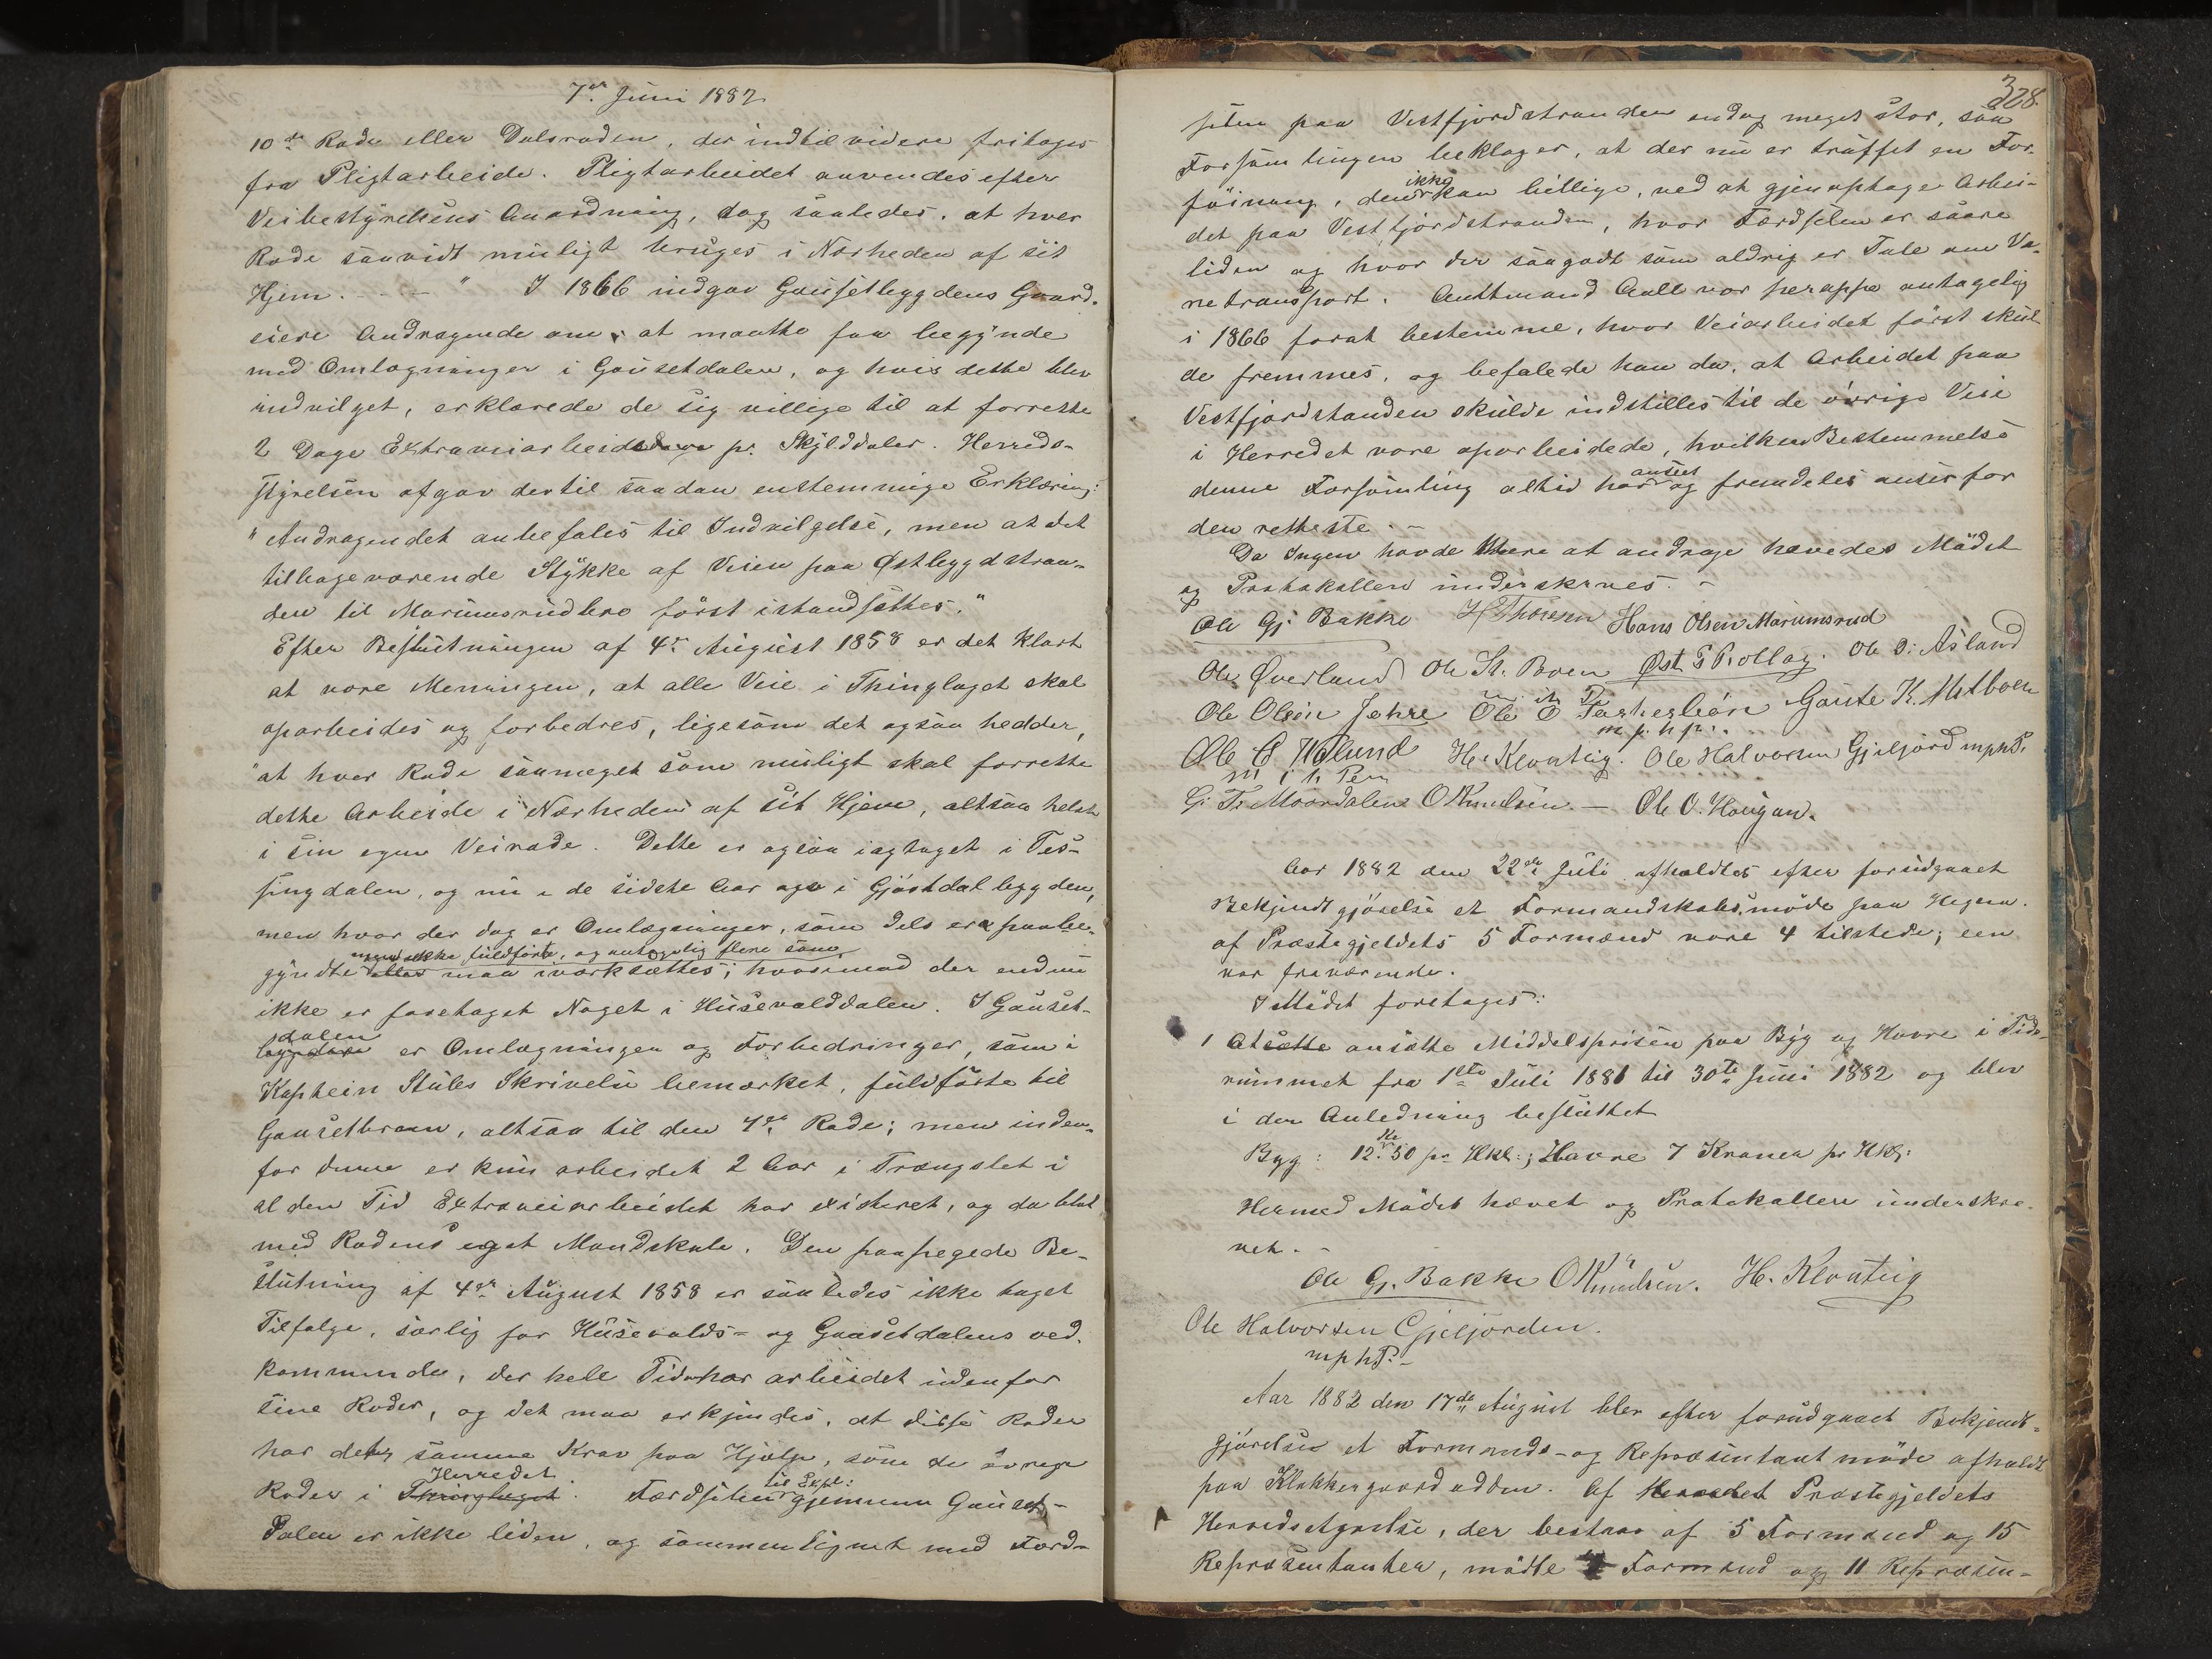 7de Juni 1882
10de Rode eller Dalsroden, der indtil videre fritages
fra Pligtarbeide. Pligtarbeidet anvendes efter
Veibestyrelsens Anordning, dog saaledes, at hver
Rode saavidt muligt bruges i Nærheden af sit
Hjem. — " I 1866 indgav Gausetbygdens Gaard-
eiere Andragende om, at maatte faa begynde
med Omlægninger i Gausetdalen, og hvis dette blev
indvilget, erklærede de sig villige til at forrette
2 Dage Extraveiarbeide pr. Skylddaler. Herreds-
styrelsen afgav dertil saadan enstemmige Erklæring:
"Andragendet anbefales til Indvilgelse, men at det
tilbageværende Stykke af Veien paa Østbygdstran-
den til Marumsrudbro först istandsættes."
Efter Beslutningen af 4de August 1858 er det klart
at være Meningen, at alle Veie i Thinglaget skal
oparbeides og forbedres, ligesom det ogsaa hedder,
"at hver Rode saameget som muligt skal forrette
dette Arbeide i Nærheden af sit Hjem, altsaa helst
i sin egen Veirode. Dette er ogsaa iagtaget i Tes-
sungdalen, og nu i de sidste Aar ogs i Gjöstdalbygden,
men hvor der dog er Omlægninger, som dels er paabe-
men ikke fuldførte, og antagelig flere som
gyndte eller maa iværksættes; hvorimod der endnu
ikke er foretaget Noget i Husevolddalen. I Gauset-
dalen
bygden er Omlægninger og Forbedringer, som i
Kaptein Stubs Skrivelse bemærket, fuldførte til
Gausetbraaen, altsaa til den 4de Rode; men inden-
for denne er kun arbeidet 2 Aar i Trængslet i
al den Tid Extraveiarbeidet har existeret, og da blot
med Rodens eget Mandskab. Den paapegede Be-
slutning af 4de August 1858 er saaledes ikke taget
Tilfølge, særlig for Husevolds- og Gausetdalens ved-
kommende, der hele Tiden har arbeidet udenfor
sine Roder, og det maa erkjendes, at disse Roder
har det samme Krav paa Hjælp, som de övrige
Herredet til Expl:
Roder i Thinglaget. Færdselen gjennem Gauset-
Dalen er ikke liden, og sammenlignet med Færd-
328.
selen paa Vestfjordstranden endog meget stor, saa
Forsamlingen beklager, at der nu er truffet en For-
ikke
föining, den kan billige, ved at gjenoptage Arbei-
det paa Vestfjordstranden, hvor Færdselen er saare
liden og hvor der saagodt som aldrig er Tale om Va-
retransport. Amtmand Aall var heroppe antagelig
i 1866 forat bestemme, hvor Veiarbeidet först skul-
de fremmes, og befalede han da, at Arbeidet paa
Vestfjordstanden skulde indstilles til de övrige Veie
i Herredet vare oparbeidede, hvilken Bestemmelse
anseet
denne Forsamling altid har og fremdeles anser for
den retteste. —
Da Ingen havde Mere at andrage hævedes Mödet
og Protokollen underskreves. —
Ole Gj. Bakke H Thoresen Hans Olsen Marumsrud
Ole Øverland Ole St. Boen Øst T Rollag. Ole O. Asland
Ole Olsön Jehre Ole O m. i h P. Gaute K. Mitboen
m. p. h. p.
Ole G Hølund H. Klonteig. Ole Halvorsen Gjeljord mphP.
m i h Pen
G. T. Moordalen O Knudsen. — Ole O. Haugan.
Aar 1882 den 22de Juli afholdtes efter forudgaaet
Bekjendtgjörelse et Formandskabsmöde paa Hegna.
af Præstegjeldets 5 Formænd vare 4 tilstede; een
var fraværende.
I Mödet foretages:
1 At sætte ansætte Middelsprisen paa Byg og Havre i Tids-
rummet fra 1ste Juli 1881 til 30te Juni 1882 og blev
i den Anledning besluttet
Byg: 12. Kr 50 pr. Hkl:; Havre 7 Kroner pr Hkl:
Hermed Mödet hævet og Protokollen underskre-
vet. —
Ole Gj. Bakke O Knudsen. H. Klonteig
Ole Halvorsen Gjeljorden.
mphP. —
Aar 1882 den 17de August blev efter forudgaaet Bekjendt-
gjörelse et Formands- og Repræsentantmöde afholdt
paa Klokkergaardodden. Af Herredet Præstegjeldets
Herredsstyrelse, der bestaar af 5 Formænd og 15
Repræsentanter, mödte 4 Formænd og 11 Repræsen-